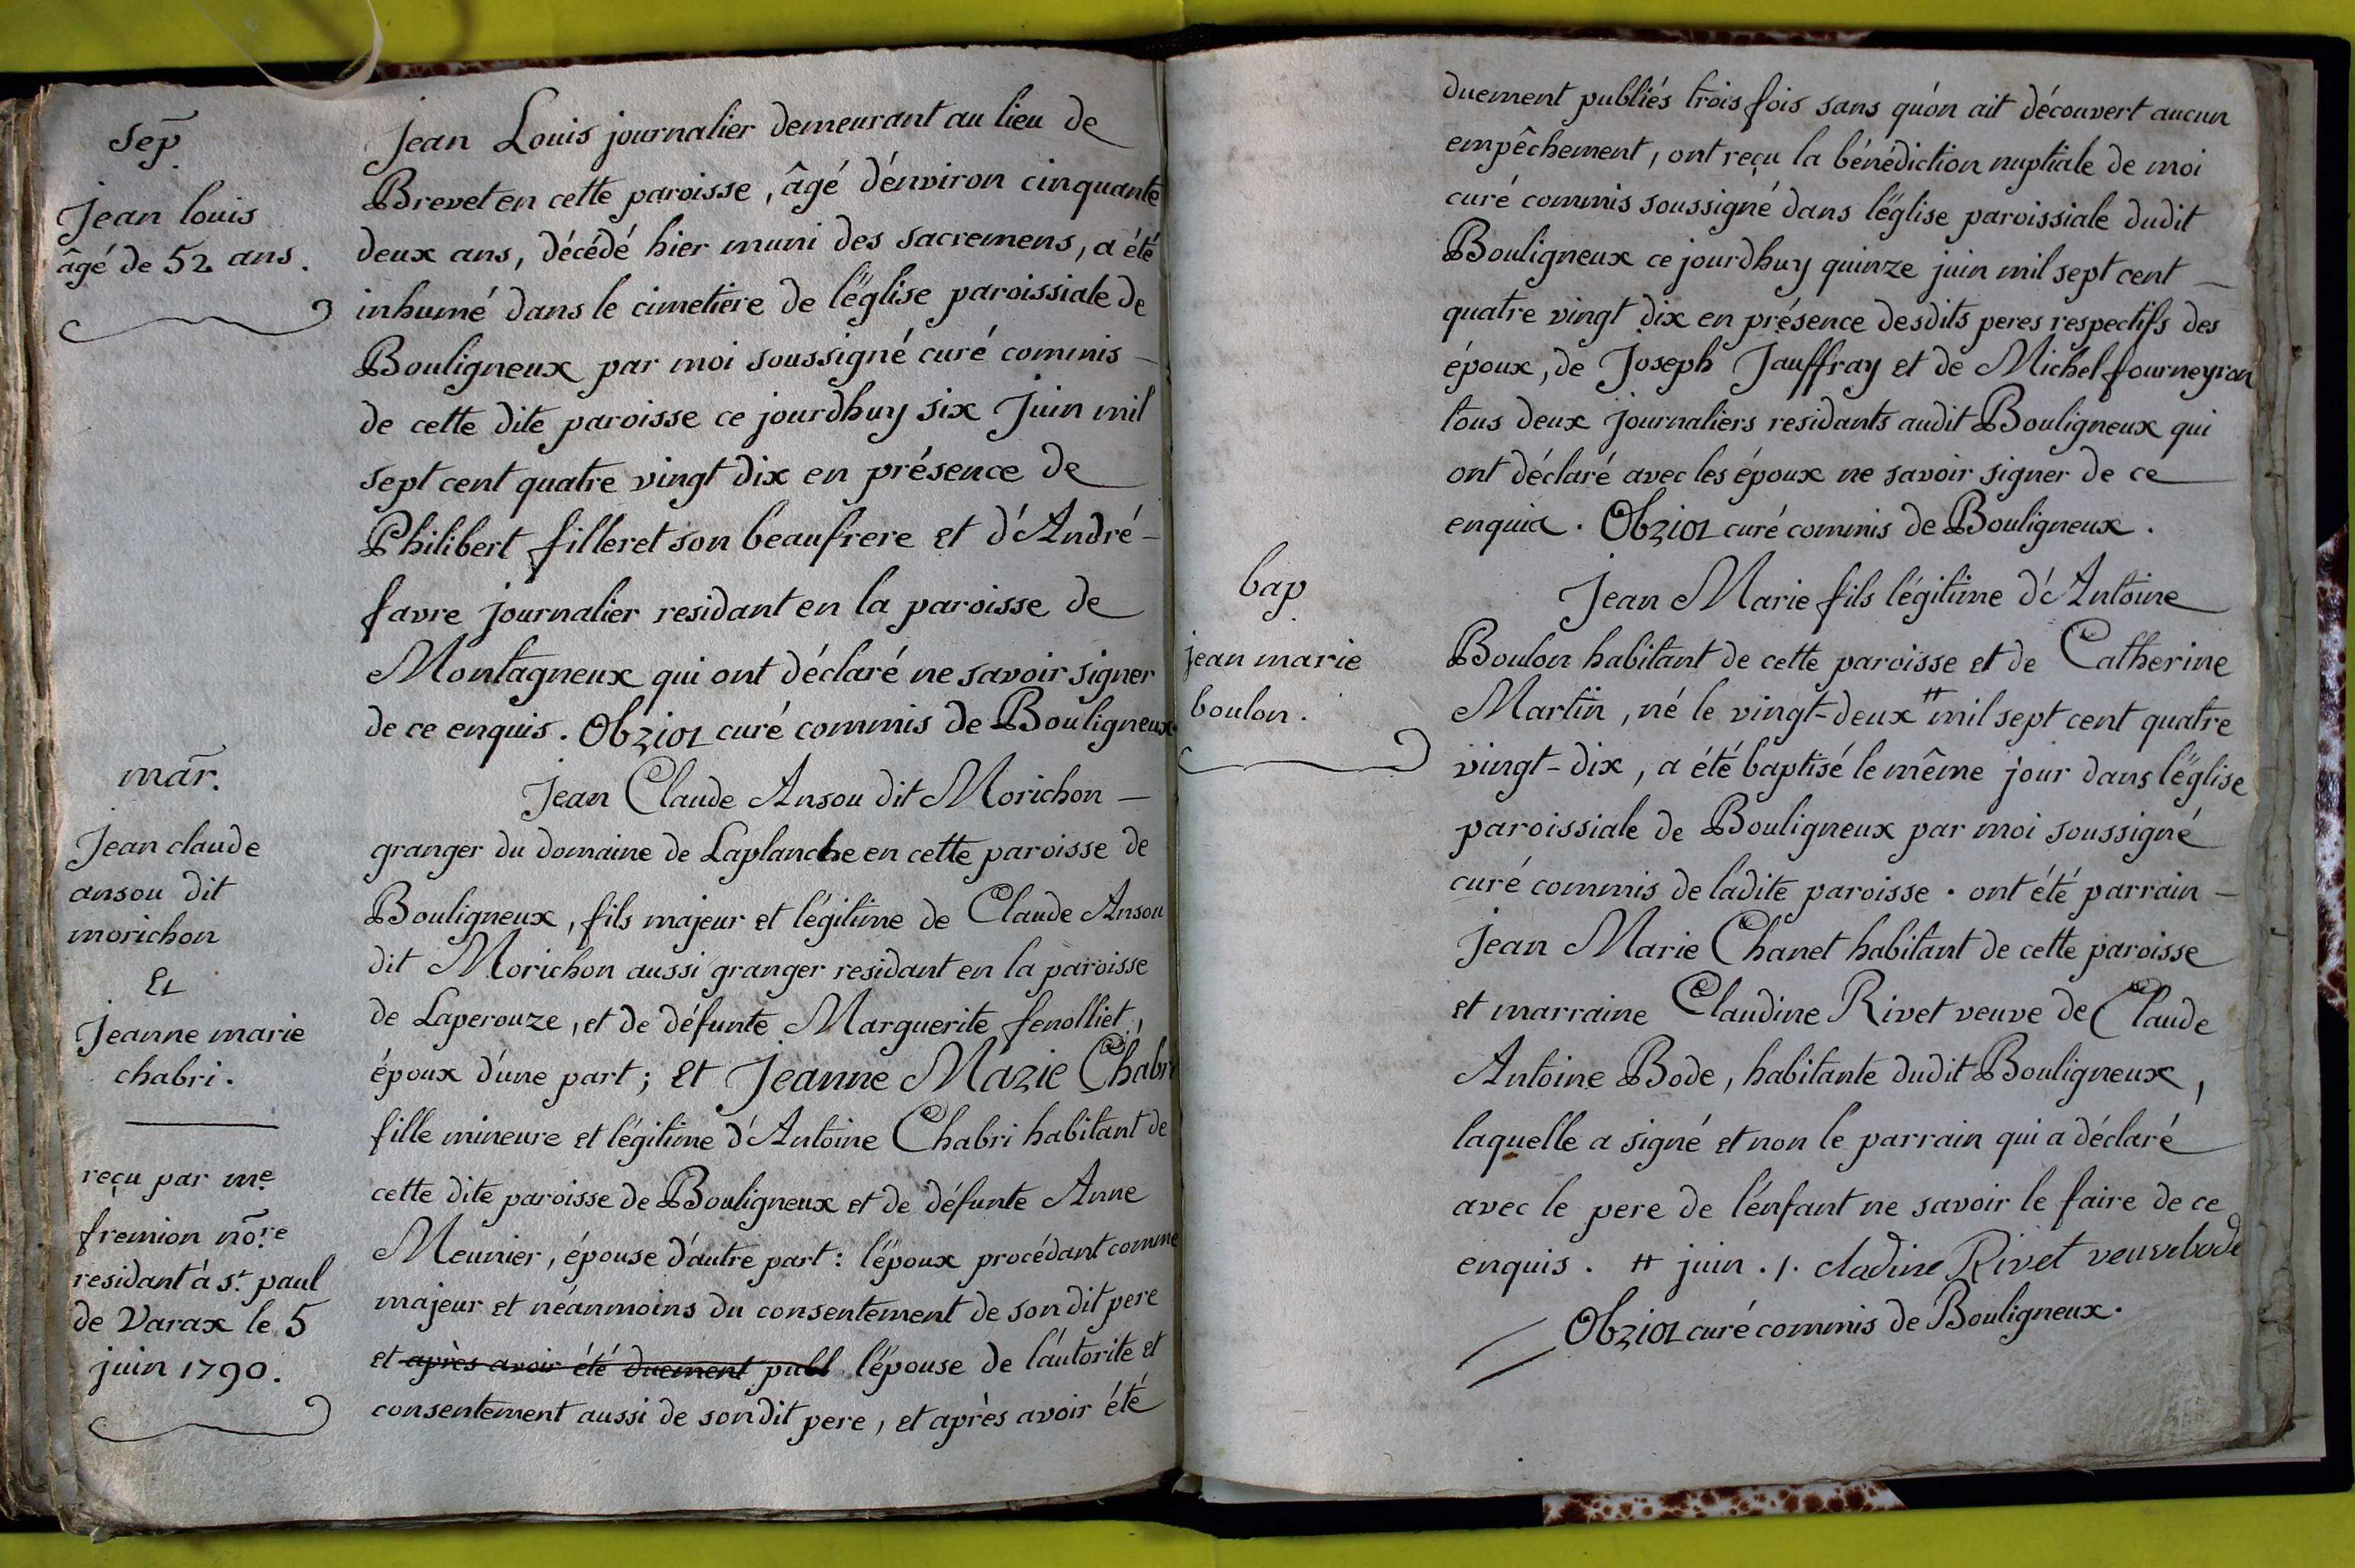 sep̃.
Jean louis
âgé de 52 ans.
Jean Louis journalier demeurant au lieu de
Brevet en cette paroisse, âgé d'environ cinquante
deux ans, décédé hier muni des sacremens, a été
inhumé dans le cimetiere de l'église paroissiale de
Bouligneux par moi soussigné curé commis —
de cette dite paroisse ce jourdhuy six Juin mil
sept cent quatre vingt dix en présence de
Philibert filleret son beaufrere et d'André —
favre journalier residant en la paroisse de
Montagneux qui ont déclaré ne savoir signer
de ce enquis. Obriot curé commis de Bouligneux
mar̃.
Jean claude
ansou dit
morichon
Et
Jeanne marie
chabri.
reçu par me
fremion nõ.re
residant à st. paul
de Varax le 5
juin 1790.
Jean Claude Ansou dit Morichon —
granger du domaine de Laplanche en cette paroisse de
Bouligneux, fils majeur et légitime de Claude Ansou
dit Morichon aussi granger residant en la paroisse
de Laperouze, et de défunte Marguerite fenolliet,
époux d'une part; et Jeanne Marie Chabri
fille mineure et légitime d'Antoine Chabri habitant de
cette dite paroisse de Bouligneux et de défunte Anne
Meunier, épouse d'autre part: l'époux procédant comme
majeur et néanmoins du consentement de son dit pere
et après avoir été duement publ l'épouse de l'autorite et
consentement aussi de son dit pere, et après avoir été
duement publiés trois fois sans qu'on ait découvert aucun
empêchement, ont reçu la bénédiction nuptiale de moi
curé commis soussigné dans l'église paroissiale dudit
Bouligneux ce jourdhuy quinze juin mil sept cent —
quatre vingt dix en présence desdits peres respectifs des
époux, de Joseph Jauffray et de Michel fourneyron
tous deux journaliers residants audit Bouligneux qui
ont déclaré avec les époux ne savoir signer de ce
enquis. Obriot curé commis de Bouligneux.
bap.
jean marie
boulon.
Jean Marie fils légitime d'Antoine
Boulon habitant de cette paroisse et de Catherine
Martin, né le vingt-deux # mil sept cent quatre
vingt-dix, a été baptisé le même jour dans l'église
paroissiale de Bouligneux par moi soussigné
curé commis de ladite paroisse. ont été parrain —
Jean Marie Chanet habitant de cette paroisse
et marraine Claudine Rivet veuve de Claude
Antoine Bode, habitante dudit Bouligneux,
laquelle a signé et non le parrain qui a déclaré
avec le pere de l'enfant ne savoir le faire de ce
enquis. # juin ./. cladine Rivet veuve bode
Obriot curé commis de Bouligneux.